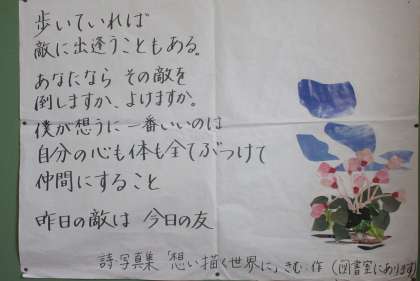 歩いていれば
敵に出逢うこともある。
あなたなら その敵を
倒しますか、よけますか。
僕が想うに一番いいのは
自分の心も体も全てぶつけて
仲間にすること
昨日の敵は 今日の友
詩・写真集「想い描く世界に」きむ・作(図書室にあります)